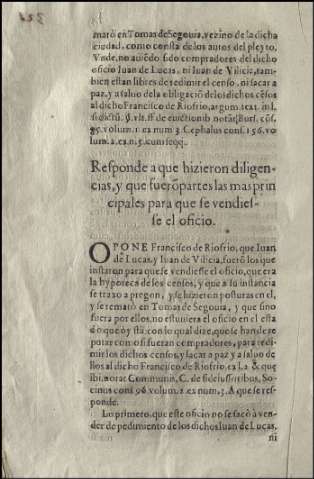 matō en Tomas de Segouia, vezino de la dicha
ciudad, como consta de los autos del pleyto,
Vnde, no auiēdo sido compradores del dicho
oficio Iuan de Lucas, ni Iuan de Vilicia, tam-
bien estan libres de redimir el censo, ni sacar a
paz, y a saluo de la obligació de los dichos cēsos
al dicho Francisco de Riofrio, argum. text. in l.
volum. 1. ex num 3. Cephalus cons. 156. vo-
lum. 2. ex n. 5. cum seqq.
Responde a que hizieron diligen-
cias, y que fuerō partes las mas prin
cipales para que se vendies-
se el oficio.
OPONE Francisco de Riofrio, que Iuan
de Lucas, y Iuan de Vilicia, fuerō los que
instaron para que se vendiesse el oficio, que era
la hypoteca de los censos, y que a su instancia
se traxo a pregon, y se hizieron posturas en el,
y se remató en Tomas de Segouia, y que sino
fuera por ellos, no estuuiera el oficio en el esta
do que oy está, con lo qual dize, que se han de re
putar como si fueran compradores, para redi-
mir los dichos censos, y sacar a paz y a saluo de
llos al dicho Francisco de Riofrio, ex l. 2. & que
ibi. notat Communis, C. de fideiussoribus, So-
cinus cons. 96. volum. 1. ex num. 3. A que se res-
ponde.
Lo primero, que este oficio no se sacò a ven-
der de pedimiento de los dichos Iuan de Lucas,
ni